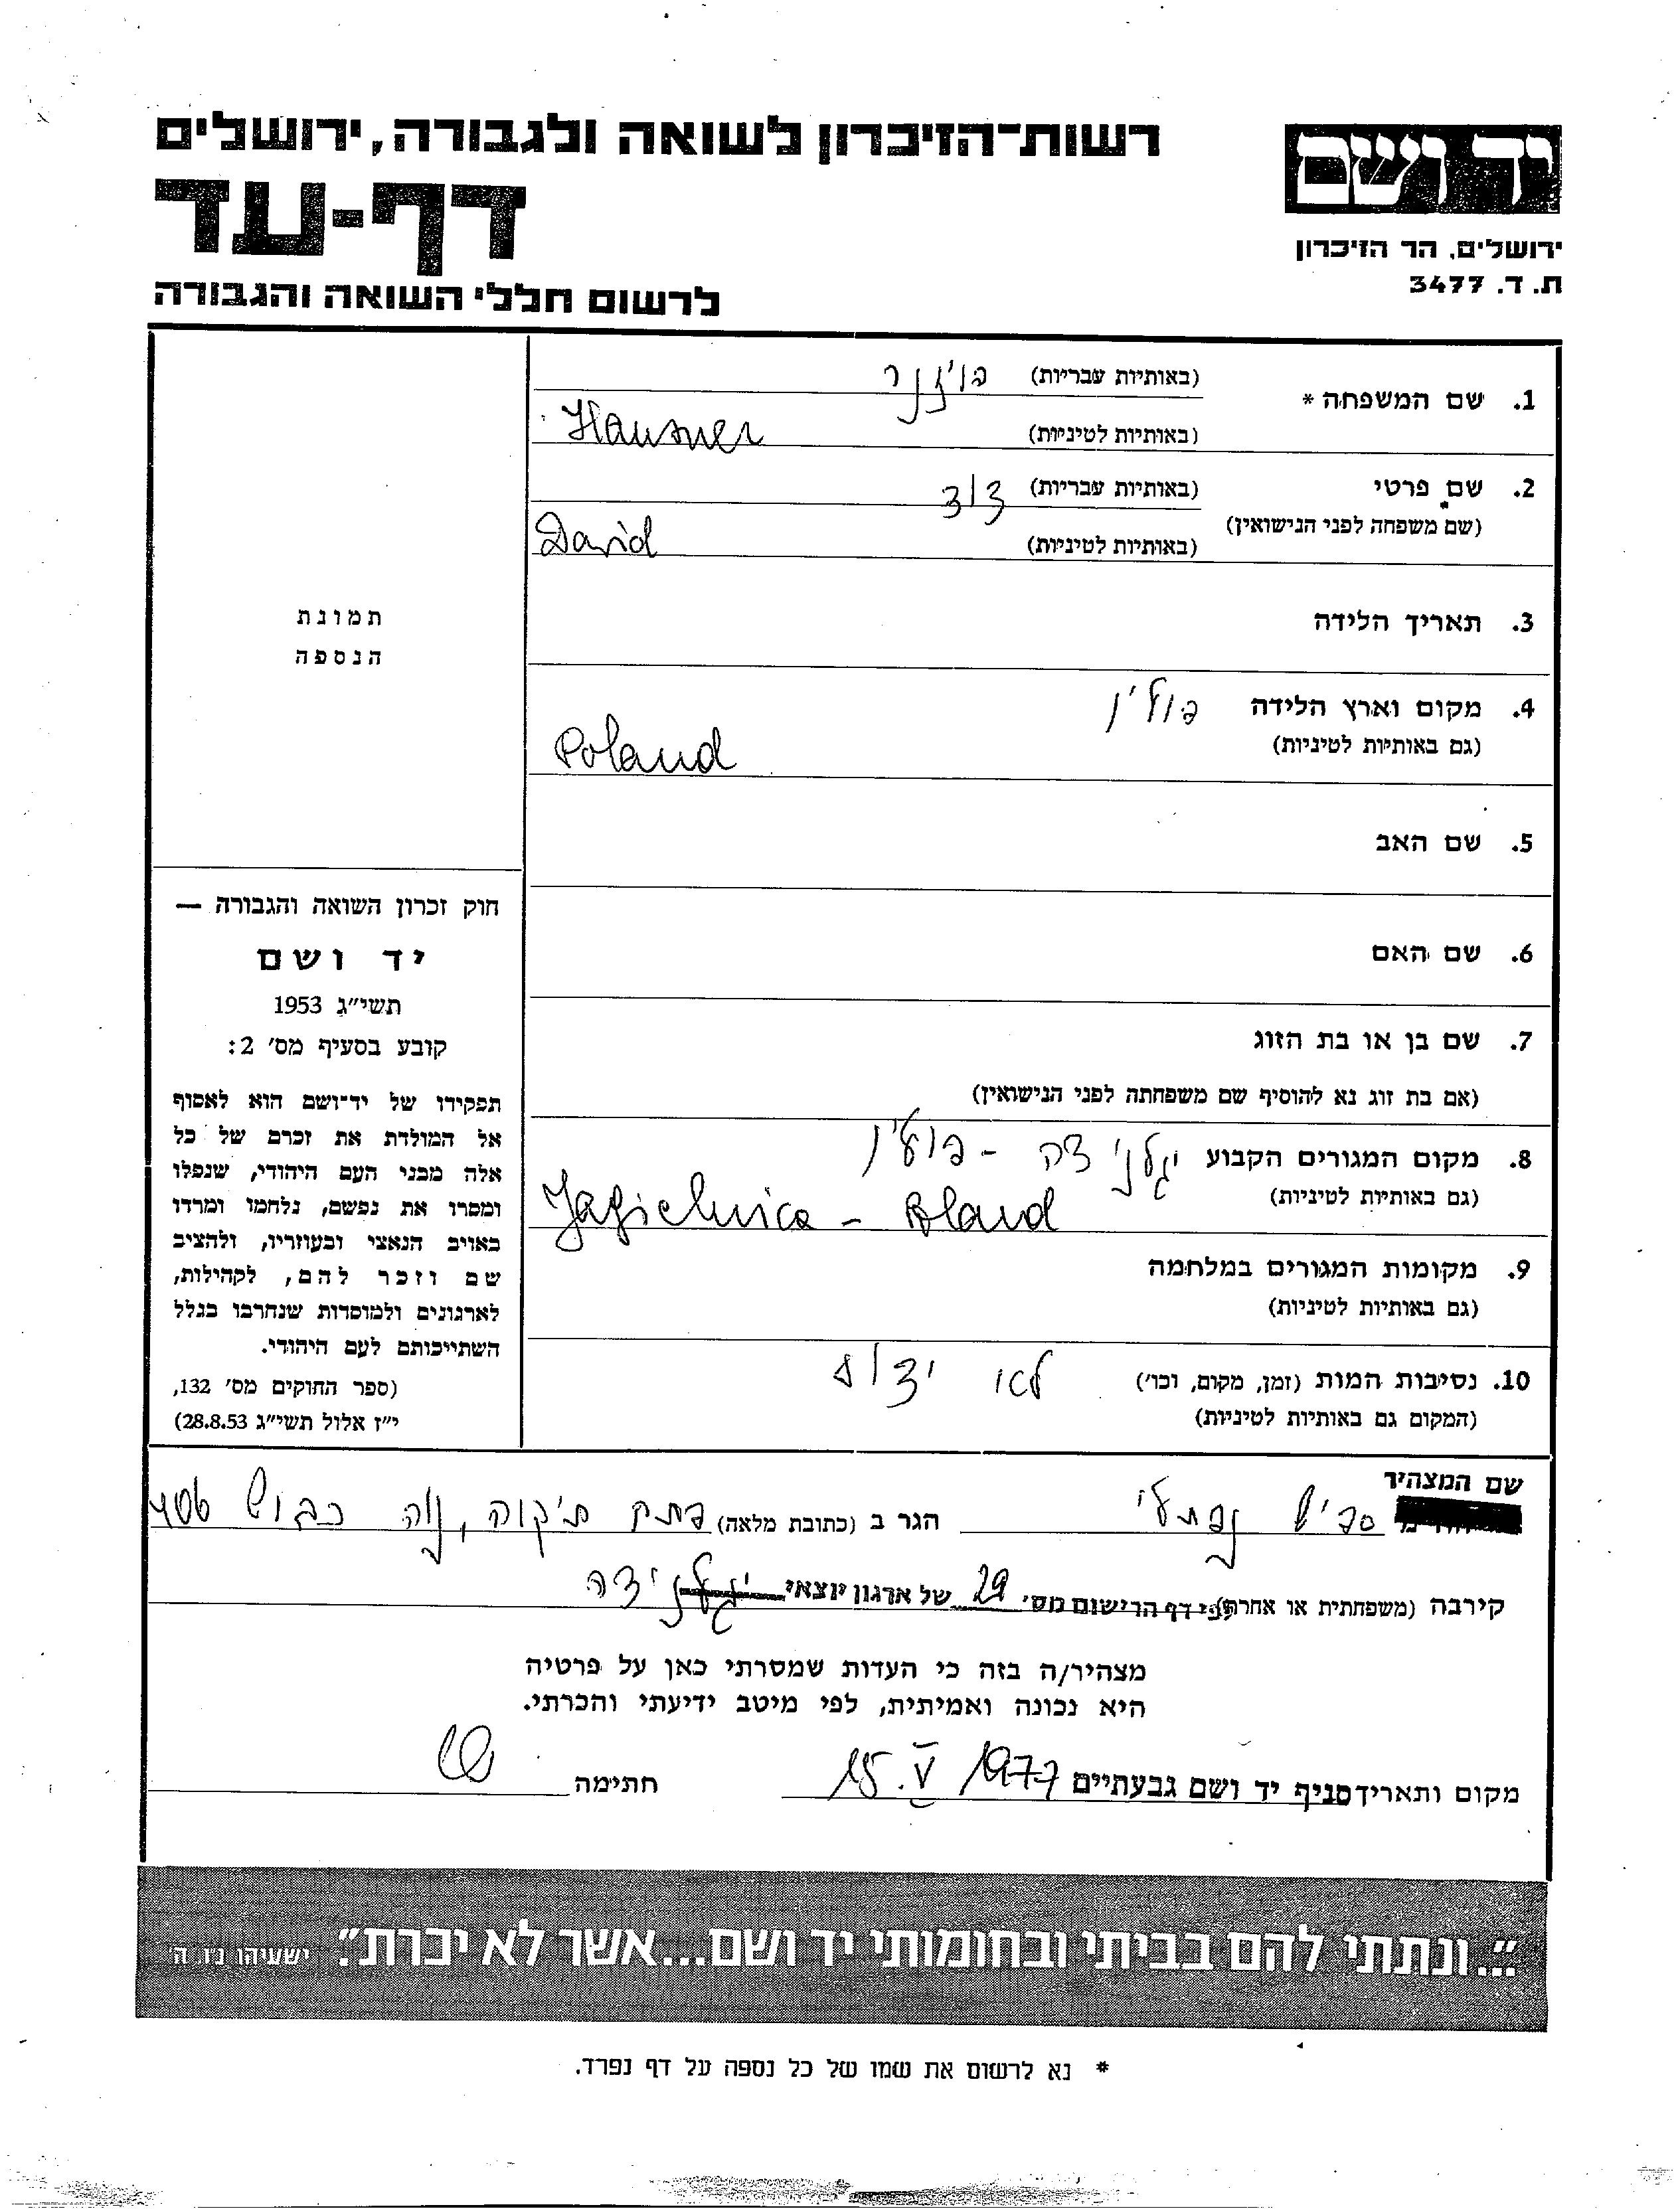 רשות־הזיכרון לשואה ולגבורה, ירושלים
יד ושם
דף-עד
ירושלים, הר הזיכרון
ת. ד. 3477
לרשום חללי השואה והגבורה
1. שם המשפחה * (באותיות עבריות) הויזנר
(באותיות לטיניות) Hausner
2. שם פרטי (באותיות עבריות) דוד
(שם משפחה לפני הנישואין)
(באותיות לטיניות) David
תמונת
הנספה
3. תאריך הלידה
4. מקום וארץ הלידה פולין
(גם באותיות לטיניות) Poland
5. שם האב
6. שם האם
7. שם בן או בת הזוג
(אם בת זוג נא להוסיף שם משפחתה לפני הנישואין)
8. מקום המגורים הקבוע יגלניצה - פולין
(גם באותיות לטיניות) Jagielnica - Poland
9. מקומות המגורים במלחמה
(גם באותיות לטיניות)
10. נסיבות המות (זמן, מקום, וכו') לא ידוע
(המקום גם באותיות לטיניות)
חוק זכרון השואה והגבורה —
יד ושם
תשי״ג 1953
קובע בסעיף מס' 2:
תפקידו של יד־ושם הוא לאסוף
אל המולדת את זכרם של כל
אלה מבני העם היהודי, שנפלו
ומסרו את נפשם, נלחמו ומרדו
באויב הנאצי ובעוזריו, ולהציב
שם וזכר להם, לקהילות,
לארגונים ולמוסדות שנחרבו בגלל
השתייכותם לעם היהודי.
(ספר החוקים מס' 132,
י״ז אלול תשי״ג 28.8.53)
שם המצהיר
נפתלי הגר ב (כתובת מלאה) פתח תיקוה, נוה כבוש
קירבה (משפחתית או אחרת) לפי דף הרישום מס' 29 של ארגון יוצאי יגלניצה
מצהיר/ה בזה כי העדות שמסרתי כאן על פרטיה
היא נכונה ואמיתית, לפי מיטב ידיעתי והכרתי.
מקום ותאריך סניף יד ושם גבעתיים 15.V 1977 חתימה
״...ונתתי להם בביתי ובחומותי יד ושם...אשר לא יכרת״. ישעיהו נ״ו, ה'
* נא לרשום את שמו של כל נספה על דף נפרד.